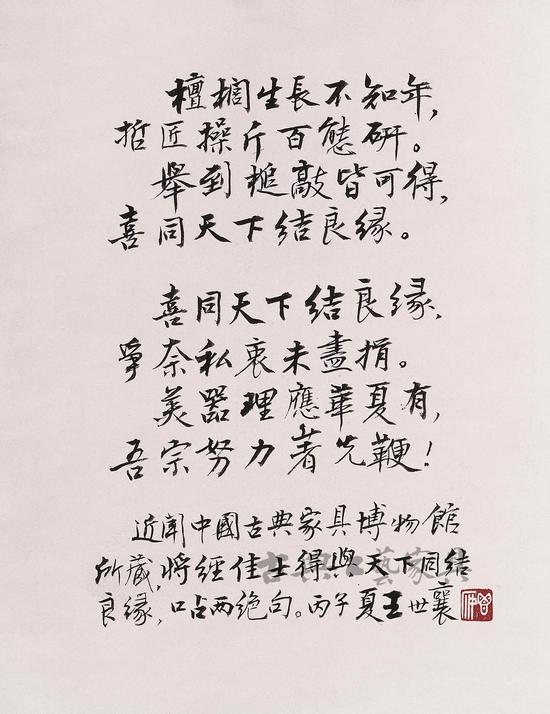 檀櫚生長不知年,
哲匠操斤百態研。
舉到槌敲皆可得,
喜同天下結良緣。
喜同天下結良緣,
爭奈私衷未盡捐。
美器理應華夏有,
吾宗努力著先鞭!
近聞中國古典家具博物館
所藏,將經佳士得與天下同結
良緣,口占兩絕句。丙子夏王世襄